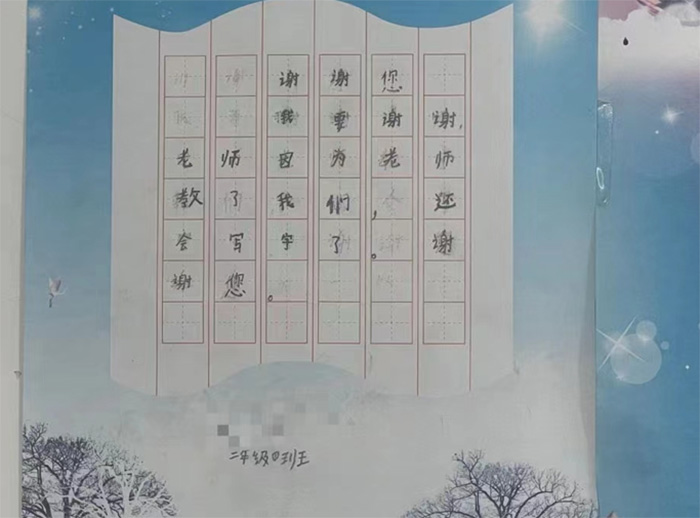 谢谢您
我要谢谢,
老师因为老师
教了我们，还
会写字了。谢
谢您。
二年级四班王